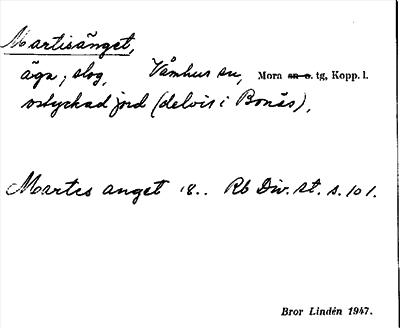 Martisänget,
äga; slog, Våmhus sn, Mora sn o. tg, Kopp. l.
ostyckad jord (delvis i Bonäs),
Martes anget 18.. Rb Div. st. s. 101.
Bror Lindén 1947.